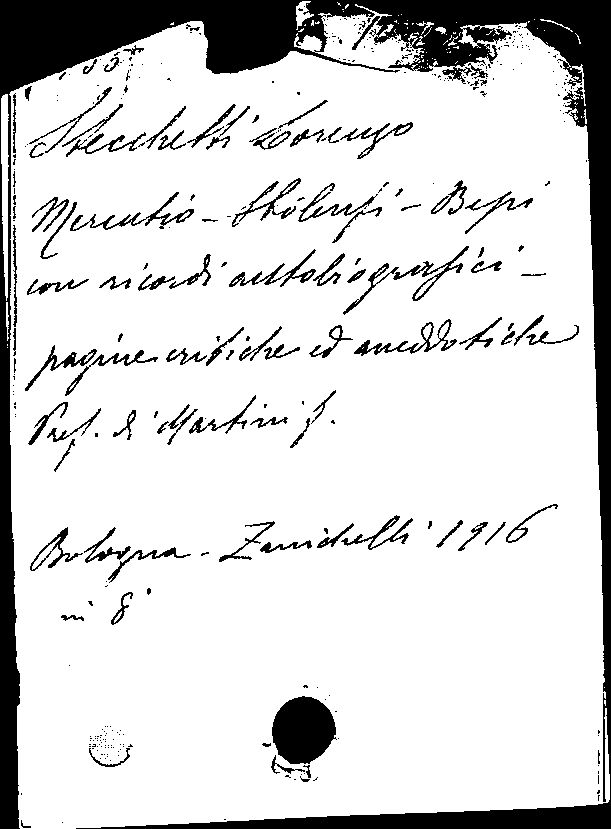 Stecchetti Lorenzo
Mercutio - Sbolenfi - Bepi
con ricordi autobiografici -
pagine critiche ed aneddotiche
Pref. di Martini F.
Bologna - Zanichelli 1916
in 8°